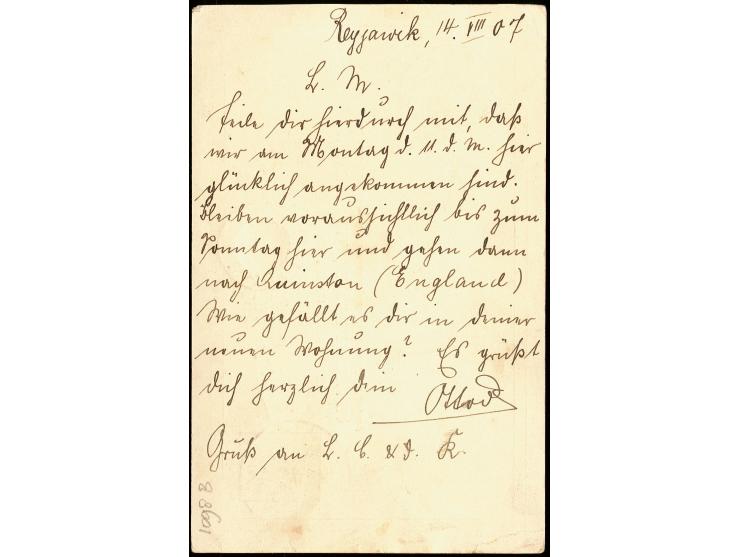 Reyjawik, 14. VIII 07
L. M.
Teile dir hierdurch mit, daß
wir am Montag d. 11. d. M. hier
glücklich angekommen sind.
Bleiben voraussichtlich bis zum
Sonntag hier und gehen dann
nach (England)
Wie gefällt es dir in deiner
neuen Wohnung? Es grüßt
dich herzlich dein Otto
Gruß an L. C. & d. K.
1098 B